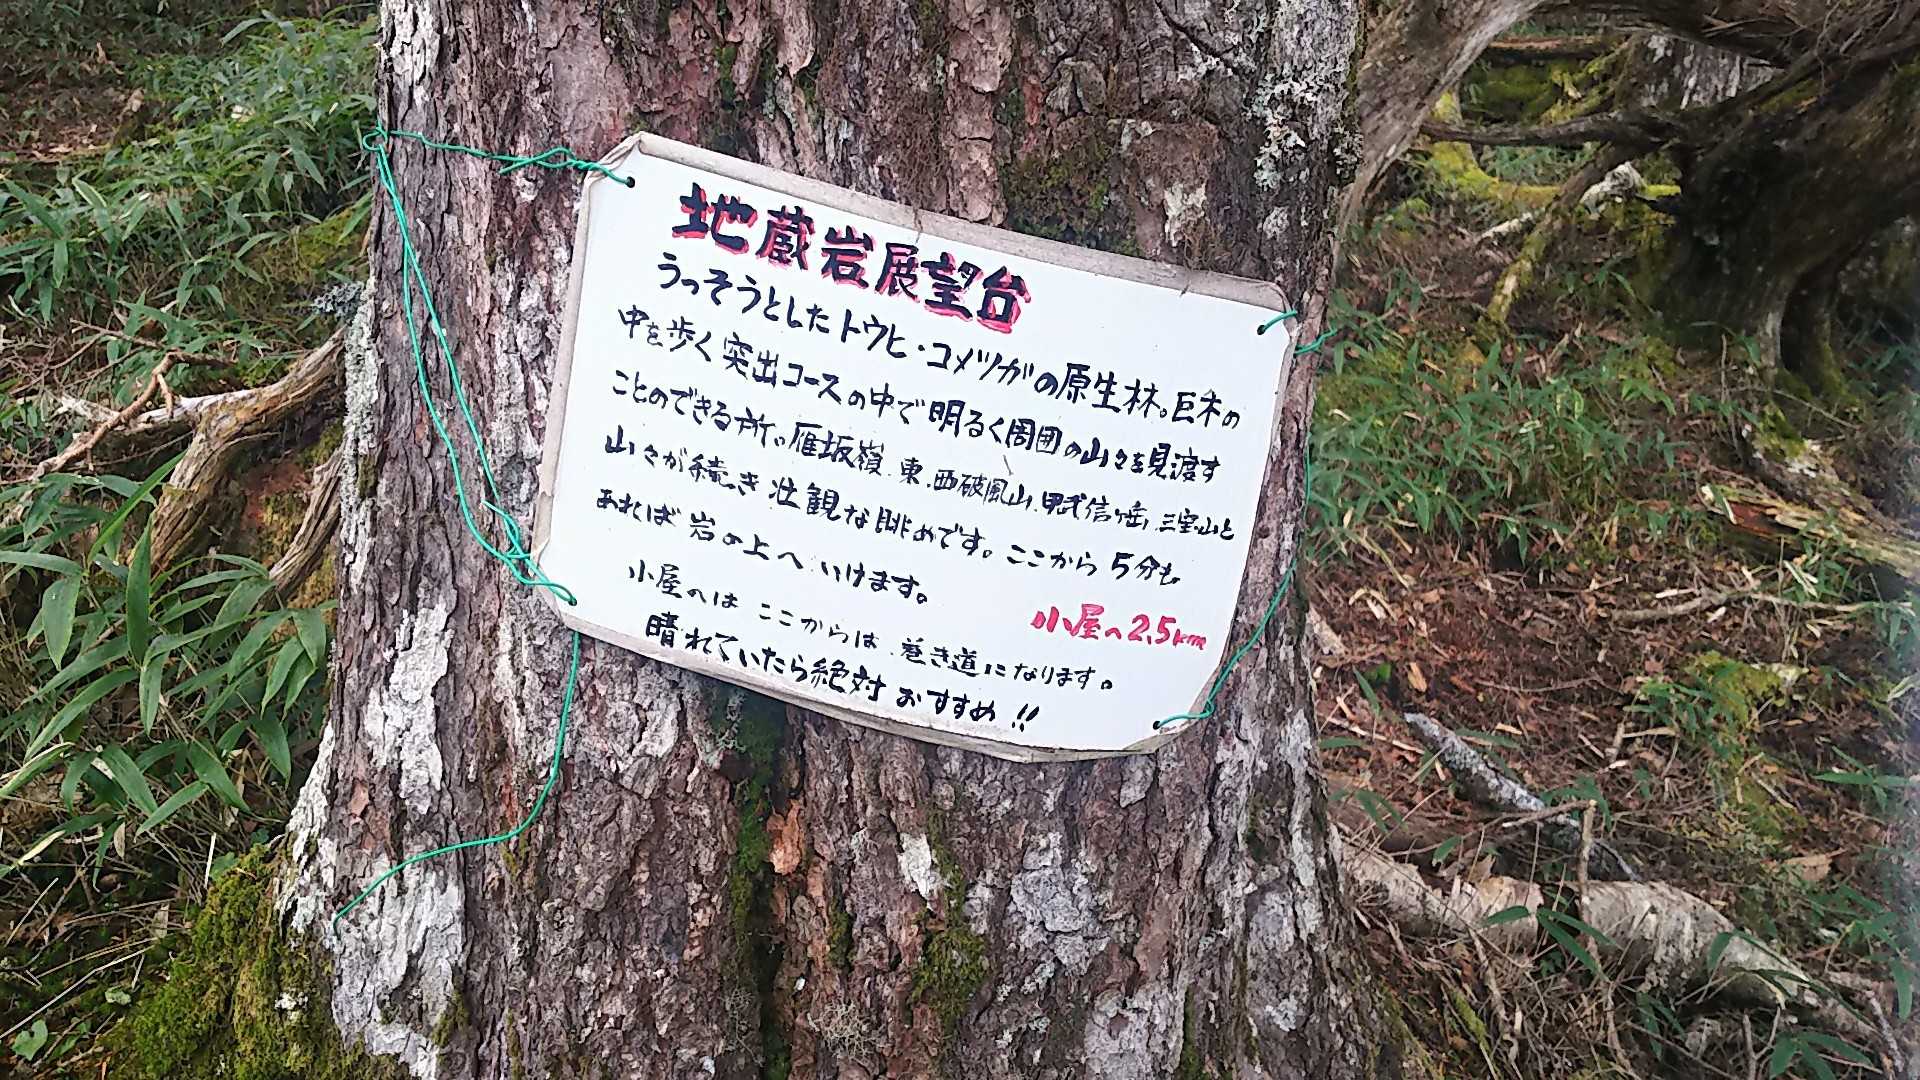 地蔵岩展望台
うっそうとしたトウヒ・コメツガの原生林。巨木の
中を歩く突出コースの中で明るく周囲の山々を見渡す
ことのできる所。雁坂嶺、東、西破風山、甲武信ヶ岳、三宝山と
山々が続き壮観な眺めです。ここから5分も
あれば岩の上へいけます。
小屋へ2.5km
小屋へは ここからは 巻き道になります。
晴れていたら絶対おすすめ!!